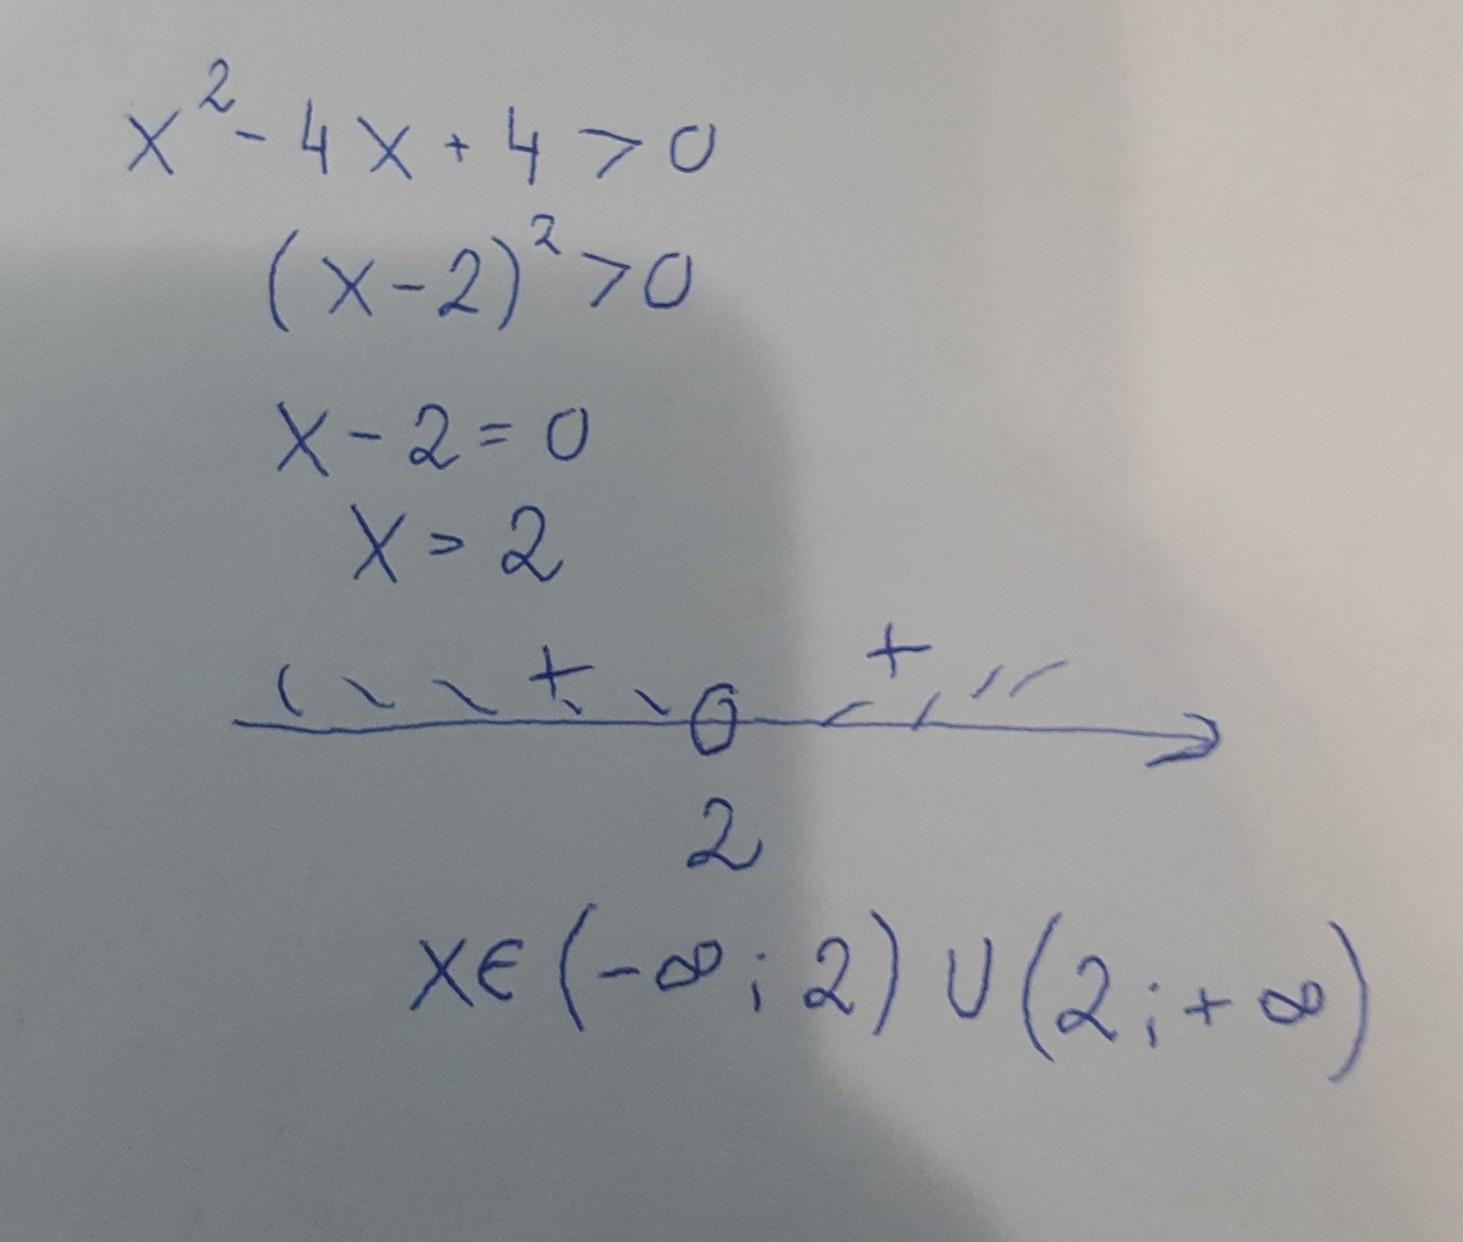 x² - 4x + 4 > 0
(x - 2)² > 0
x - 2 = 0
x = 2
+ +
2
x ∈ (-∞; 2) ∪ (2; +∞)